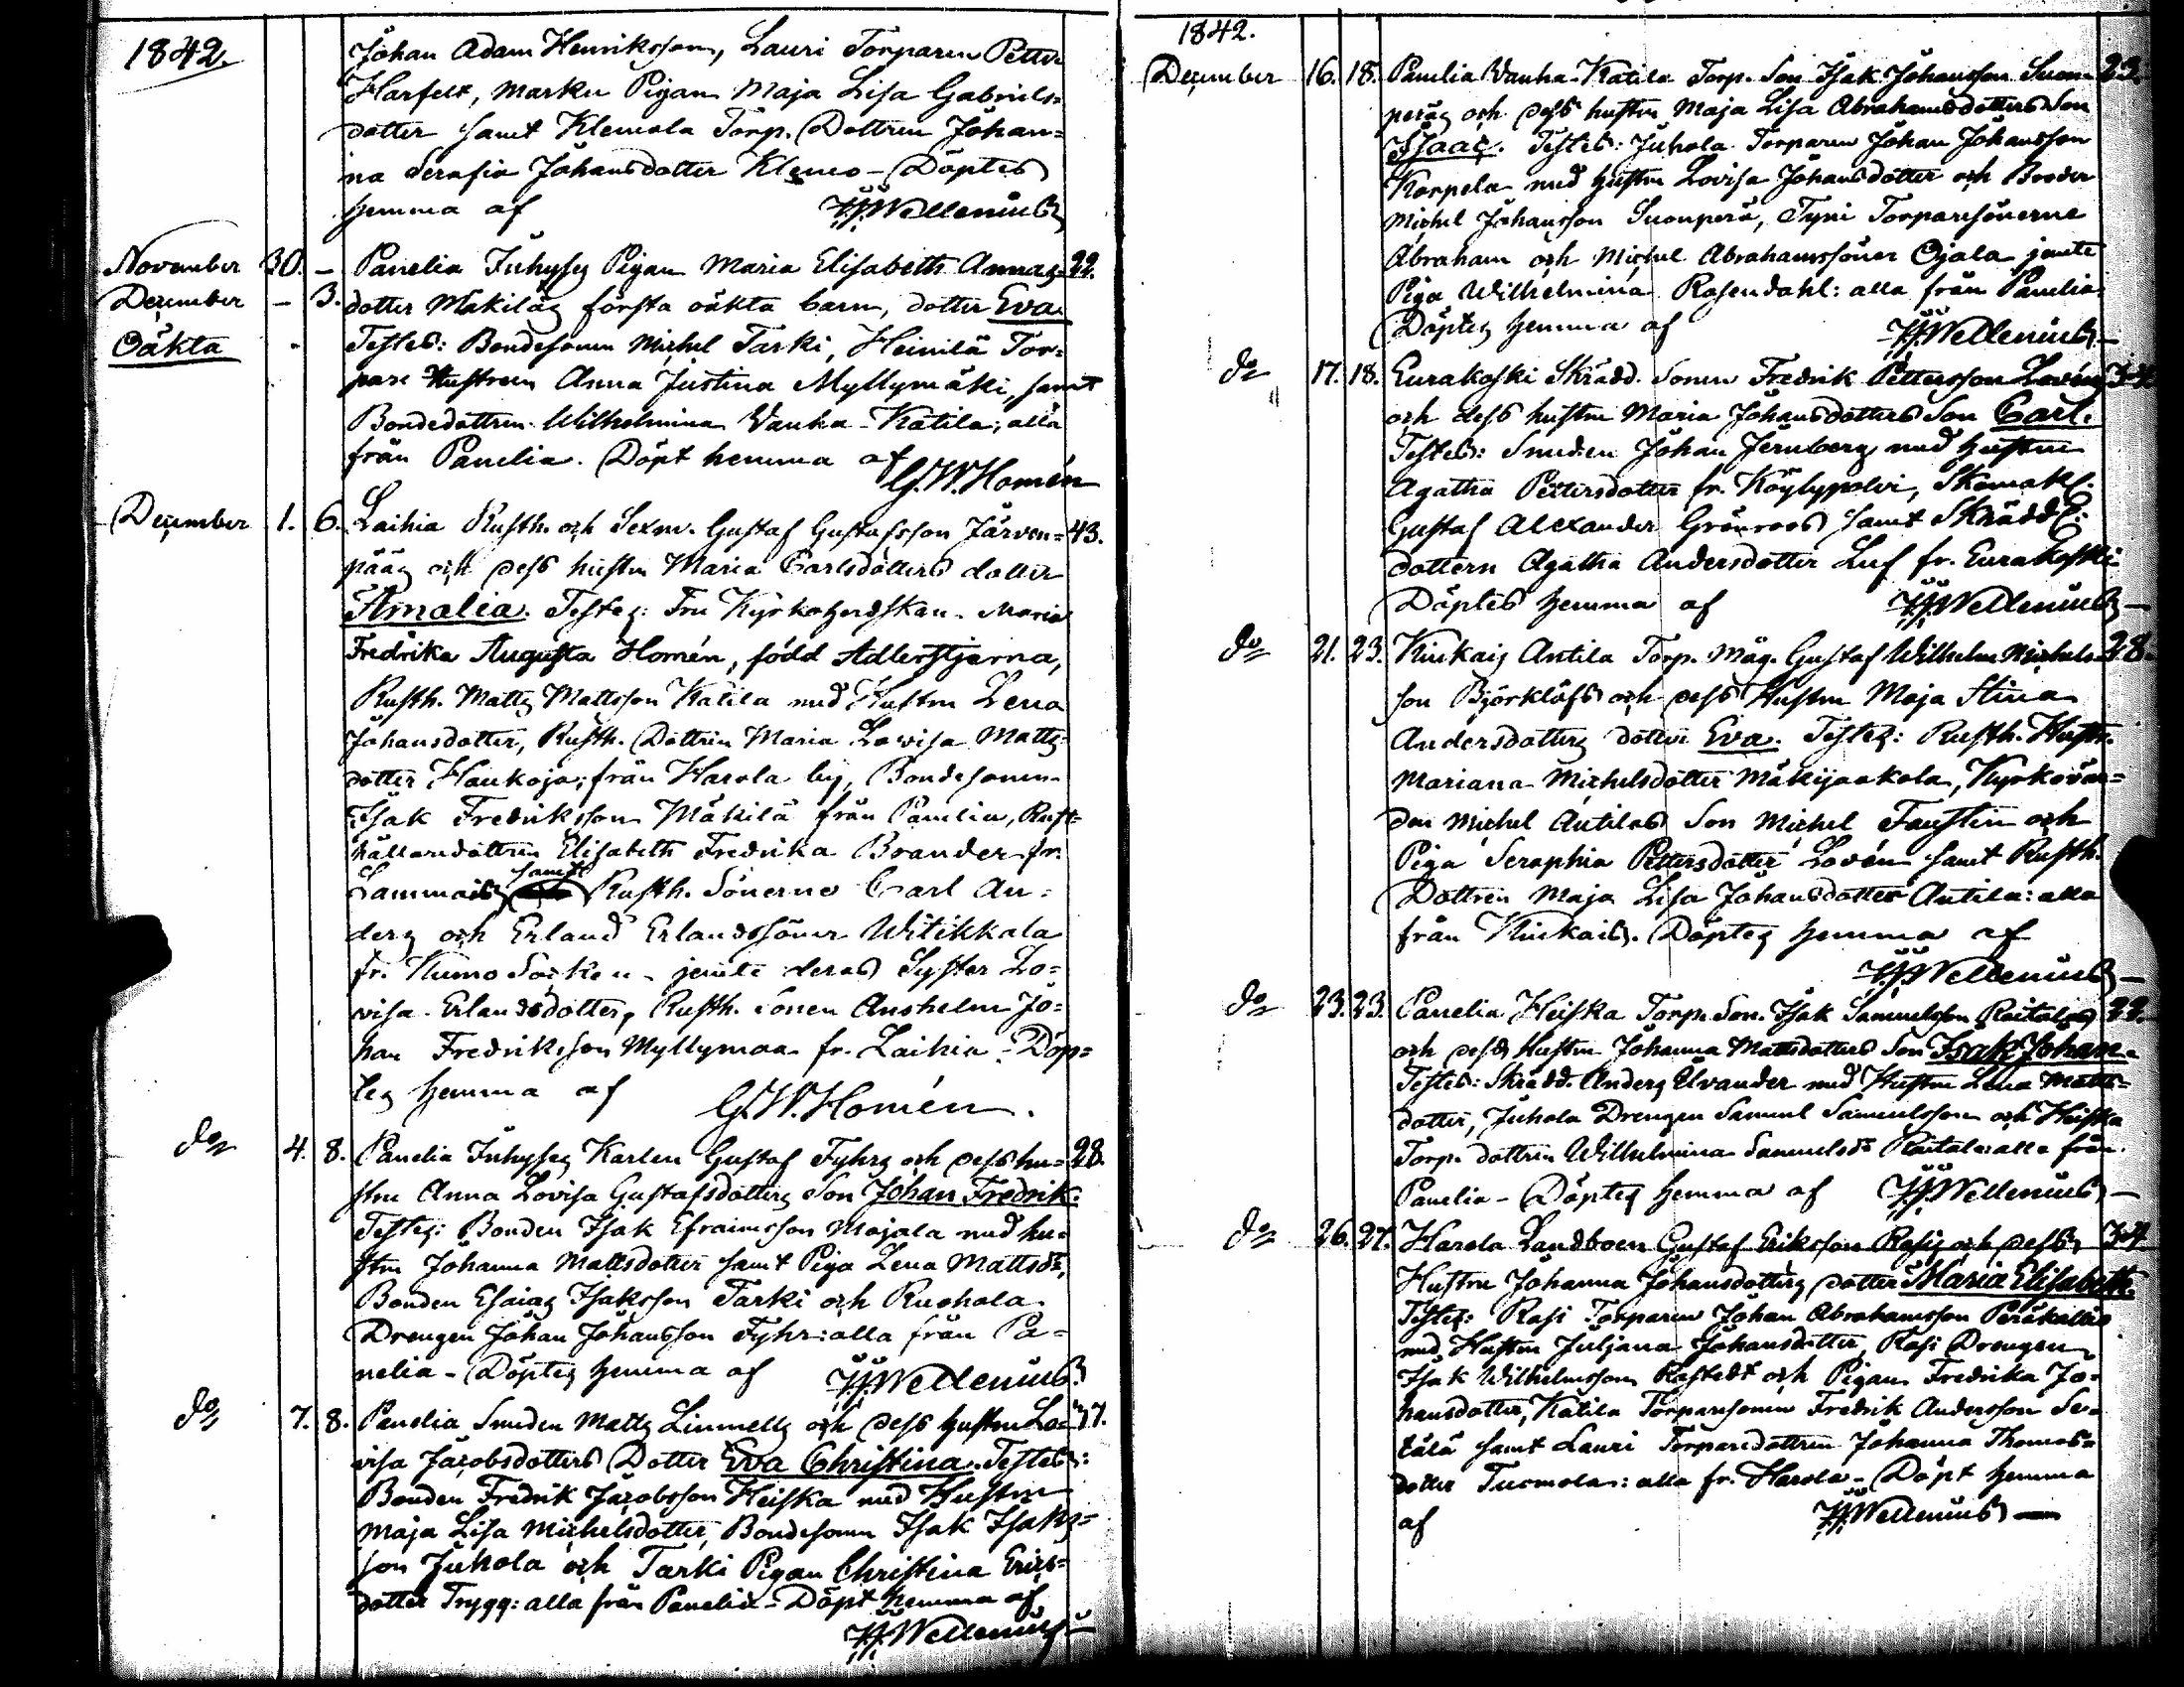 1842.
Johan Adam Henriksson, Lauri Torparen Petter
Harfelt, Marku Pigan Maja Lisa Gabriels=
dotter samt Klemola Torp. Dottren Johan=
na Serafia Johansdotter Klemo - Döptes
hemma af
November 30. - Panelia Inhyses Pigan Maria Elisabeth Annas= 22.
December - 3. dotter Mäkiläs första oäkta barn, dotter Eva
Oäkta - Testes: Bondesonen Michel Tarki, Heinilä Tor=
pare Hustrun Anna Justina Myllymäki, samt
Bondedottren Wilhelmina Vanha-Katila; alla
från Panelia. Döpt hemma af
G.W. Homén
December 1. 6. Laihia Rusth. och Sexm. Gustaf Gustafsson Järven= 43.
pääs och dess hustru Maria Carlsdotters dotter
Amalia. Testes: Fru Kyrkoherdskan Maria
Fredrika Augusta Homén, född Adlerstjerna,
Rusth. Matts Mattsson Katila med Hustru Lena
Johansdotter, Rusth. Dottren Maria Lovisa Matts=
dotter Haukoja; från Harola by, Bondesonen
Isak Fredriksson Mäkilä från Panelia, Rust=
hållaredottren Elisabeth Fredrika Brander fr.
Lammais samt Rusth. Sönerne Carl An=
ders och Erland Erlandssöner Witikkala
fr. Kumo Socken - jemte deras Syster Lo=
visa Erlandsdotter, Rusth. Sonen Anshelm Jo=
han Fredriksson Myllymaa fr. Laihia - Döp=
tes hemma af G.W. Homén.
do 4. 8. Panelia Inhyses Karlen Gustaf Fyhrs och dess hu= 28.
stru Anna Lovisa Gustafsdotters Son Johan Fredrik.
Testes: Bonden Isak Efraimsson Majala med hu=
stru Johanna Mattsdotter samt Piga Lena Mattsdr,
Bonden Esaias Isaksson Tarki och Ruohola
Drengen Johan Johansson Fyhr: alla från Pa=
nelia - Döptes hemma af
do 7. 8. Panelia Smeden Matts Linnells och dess hustru Lo=
visa Jacobsdotters Dotter Eva Christina. Testes:
Bonden Fredrik Jacobsson Heiska med Hustru
Maja Lisa Michelsdotter, Bondesonen Isak Isaks=
son Juhola och Tarki Pigan Christina Erics=
dotter Trygg: alla från Panelia - Döpt hemma af
1842.
December 16. 18. Panelia Vanha-Katila Torp. Son Isak Johansson Suon=
peräs och dess hustru Maja Lisa Abrahamsdotters Son
Isaac. Testes: Juhola Torparen Johan Johansson
Korpela med hustru Lovisa Johansdotter och Broder
Michel Johansson Suonperä, Tyni Torparesönerne
Abraham och Michel Abrahamssöner Ojala jemte
Piga Wilhelmina Rosendahl: alla från Panelia
Döptes hemma af
do 17. 18. Eurakoski Skrädd. Sonen Fredrik Pettersson Lovéns 34
och dess hustru Maria Johansdotters Son Carl.
Testes: Smeden Johan Jernberg med hustru
Agatha Pettersdotter fr. Köylypolvi, Skomak.
Gustaf Alexander Grönroos samt Skrädd.
dottern Agatha Andersdotter Luf fr. Eurakoski
Döptes hemma af
do 21. 23. Kiukais Antila Torp. Måg. Gustaf Wilhelm Michels= 28.
son Björklöfs och dess Hustru Maja Stina
Andersdotters dotter Eva. Testes: Rusth. Hustr.
Mariana Michelsdotter Mäkijaakola, Kyrkovär=
den Michel Antilas Son Michel Faustin och
Piga Seraphia Pettersdotter Lovén samt Rusth.
Dottren Maja Lisa Johansdotter Antila: alla
från Kiukais. Döptes hemma af
do 23. 23. Panelia Heiska Torp. Son. Isak Samuelsson Raitalas 22.
och dess Hustru Johanna Mattsdotters Son Isak Johan.
Testes: Skrädd. Anders Elvander med Hustru Lena Matts=
dotter, Juhola Drengen Samuel Samuelsson och Heiska
Torp. dottren Wilhelmina Samuelsdr Raitala: alla från
Panelia - Döptes hemma af
do 26. 27. Harola Landboen Gustaf Eriksson Rasis och dess 34
Hustru Johanna Johansdotters dotter Maria Elisabeth.
Testes: Rasi Torparen Johan Abrahamsson Peräkallio
med Hustru Juljana Johansdotter, Rasi Drengen
Isak Wilhelmsson Rostedt och Pigan Fredrika Jo=
hansdotter, Katila Torparesonen Fredrik Andersson Se=
tälä samt Lauri Torparedottren Johanna Thomas=
dotter Tuomola: alla fr. Harola - Döpt hemma
af